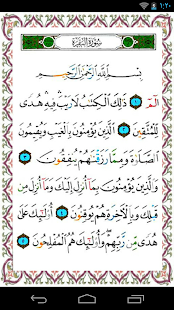 ١:٢٠
سُورَةُ الْبَقَرَةِ
بِسْمِ اللَّهِ الرَّحْمَٰنِ الرَّحِيمِ
الٓمٓ ١ ذَٰلِكَ الْكِتَٰبُ لَا رَيْبَ فِيهِ هُدًى
لِّلْمُتَّقِينَ ٢ الَّذِينَ يُؤْمِنُونَ بِالْغَيْبِ وَيُقِيمُونَ
الصَّلَوٰةَ وَمِمَّا رَزَقْنَٰهُمْ يُنفِقُونَ ٣
وَالَّذِينَ يُؤْمِنُونَ بِمَآ أُنزِلَ إِلَيْكَ وَمَآ أُنزِلَ مِن
قَبْلِكَ وَبِالْءَاخِرَةِ هُمْ يُوقِنُونَ ٤ أُو۟لَٰٓئِكَ عَلَىٰ
هُدًى مِّن رَّبِّهِمْ وَأُو۟لَٰٓئِكَ هُمُ الْمُفْلِحُونَ ٥